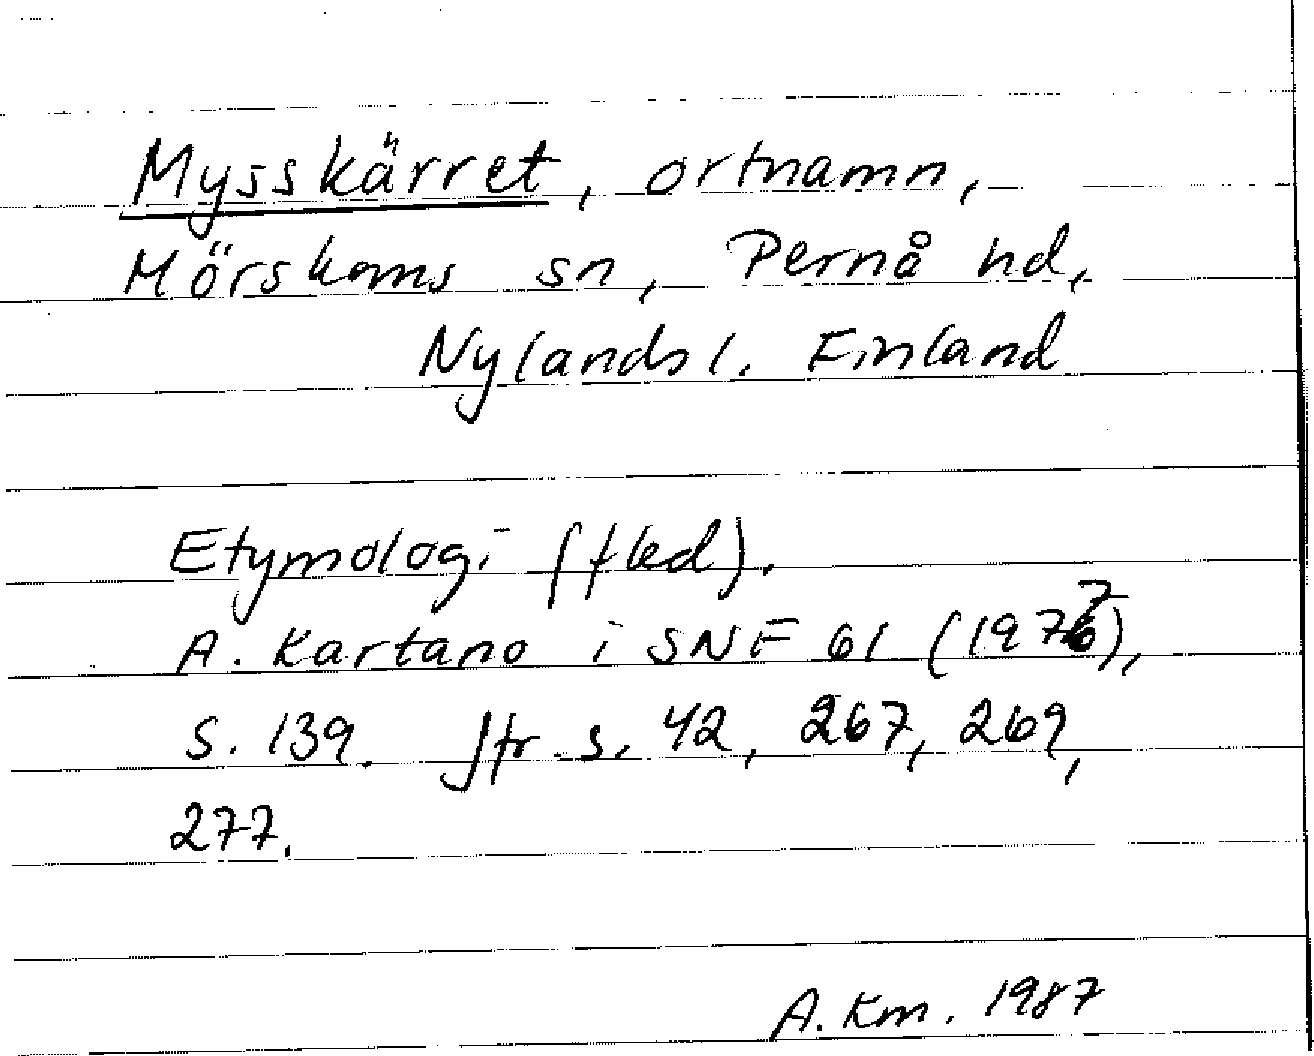 Mysskärret, ortnamn,
Mörskoms sn, Pernå hd,
Nylands l. Finland
Etymologi (fled).
A. Kartano i SNF 61 (1977),
S. 139. Jfr s. 42, 267, 269,
277.
A. Km. 1987